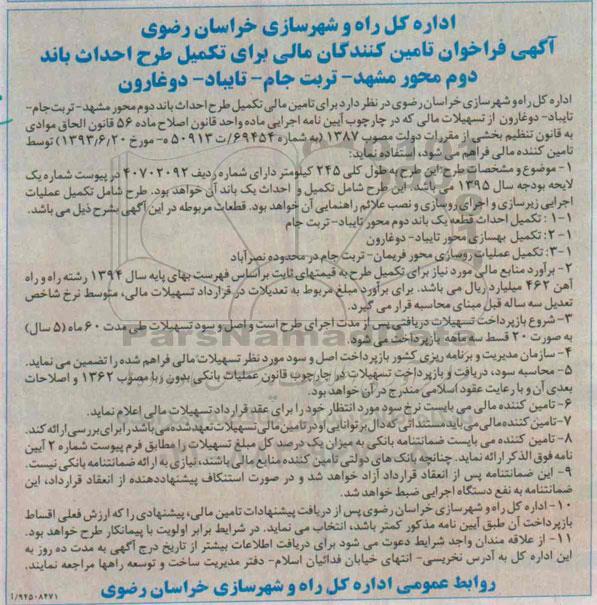 اداره کل راه و شهرسازی خراسان رضوی
آگهی فراخوان تامین کنندگان مالی برای تکمیل طرح احداث باند
دوم محور مشهد- تربت جام- تایباد- دوغارون
اداره کل راه و شهرسازی خراسان رضوی در نظر دارد برای تامین مالی تکمیل طرح احداث باند دوم محور مشهد- تربت جام-
تایباد- دوغارون از تسهیلات مالی که در چارچوب آیین نامه اجرایی ماده واحد قانون اصلاح ماده ۵۶ قانون الحاق موادی
به قانون تنظیم بخشی از مقررات دولت مصوب ۱۳۸۷ (به شماره ۶۹۴۵۴/ت ۵۰۹۱۳ ه- مورخ ۱۳۹۳/۶/۲۰) توسط
تامین کننده مالی فراهم می شود، استفاده نماید:
۱- موضوع و مشخصات طرح: این طرح به طول کلی ۲۴۵ کیلومتر دارای شماره ردیف ۴۰۷۰۲۰۹۲ در پیوست شماره یک
لایحه بودجه سال ۱۳۹۵ می باشد. این طرح شامل تکمیل و احداث یک باند آن خواهد بود. طرح شامل تکمیل عملیات
اجرایی زیرسازی و اجرای روسازی و نصب علائم راهنمایی آن خواهد بود. قطعات مربوطه در این آگهی بشرح ذیل می باشد.
۱-۱ : تکمیل احداث قطعه یک باند دوم محور تایباد- تربت جام
۲-۱ : تکمیل بهسازی محور تایباد- دوغارون
۳-۱: تکمیل عملیات روسازی محور فریمان- تربت جام در محدوده نصرآباد
۲- برآورد منابع مالی مورد نیاز برای تکمیل طرح به قیمتهای ثابت بر اساس فهرست بهای پایه سال ۱۳۹۴ رشته راه و راه
آهن ۴۶۲ میلیارد ریال می باشد. برای برآورد مبلغ مربوط به تعدیلات در قرارداد تسهیلات مالی، متوسط نرخ شاخص
تعدیل سه ساله قبل مبنای محاسبه قرار می گیرد.
۳- شروع بازپرداخت تسهیلات دریافتی پس از مدت اجرای طرح است و اصل و سود تسهیلات طی مدت ۶۰ ماه (۵ سال)
به صورت ۲۰ قسط سه ماهه بازپرداخت می شود.
۴- سازمان مدیریت و برنامه ریزی کشور بازپرداخت اصل و سود مورد نظر تسهیلات مالی فراهم شده را تضمین می نماید.
۵- محاسبه سود، دریافت و بازپرداخت تسهیلات در چارچوب قانون عملیات بانکی بدون ربا مصوب ۱۳۶۲ و اصلاحات
بعدی آن و با رعایت عقود اسلامی مندرج در آن خواهد بود.
۶- تامین کننده مالی می بایست نرخ سود مورد انتظار خود را برای عقد قرارداد تسهیلات مالی اعلام نماید.
۷- تامین کننده مالی می باید مستنداتی که دال بر توانایی او در تامین مالی تسهیلات تعهد شده می باشد را برای بررسی ارائه کند.
۸- تامین کننده می بایست ضمانتنامه بانکی به میزان یک درصد کل مبلغ تسهیلات را مطابق فرم پیوست شماره ۲ آیین
نامه فوق الذکر ارائه نماید. چنانچه بانک های دولتی تامین کننده منابع مالی باشند، نیازی به ارائه ضمانتنامه بانکی نیست.
۹- این ضمانتنامه پس از انعقاد قرارداد آزاد خواهد شد و در صورت استنکاف پیشنهاددهنده از انعقاد قرارداد، این
ضمانتنامه به نفع دستگاه اجرایی ضبط خواهد شد.
۱۰- اداره کل راه و شهرسازی خراسان رضوی پس از دریافت پیشنهادات تامین مالی، پیشنهادی را که ارزش فعلی اقساط
بازپرداخت آن طبق آیین نامه مذکور کمتر باشد، انتخاب می نماید. در شرایط برابر اولویت با پیمانکار طرح خواهد بود.
۱۱- از علاقه مندان واجد شرایط دعوت می شود برای دریافت اطلاعات بیشتر از تاریخ درج آگهی به مدت ده روز به
این اداره کل به آدرس نخریسی- انتهای خیابان فدائیان اسلام- دفتر مدیریت ساخت و توسعه راهها مراجعه نمایند.
روابط عمومی اداره کل راه و شهرسازی خراسان رضوی
۹۴۵۰۸۴۷۱/ا
ParsNamadData